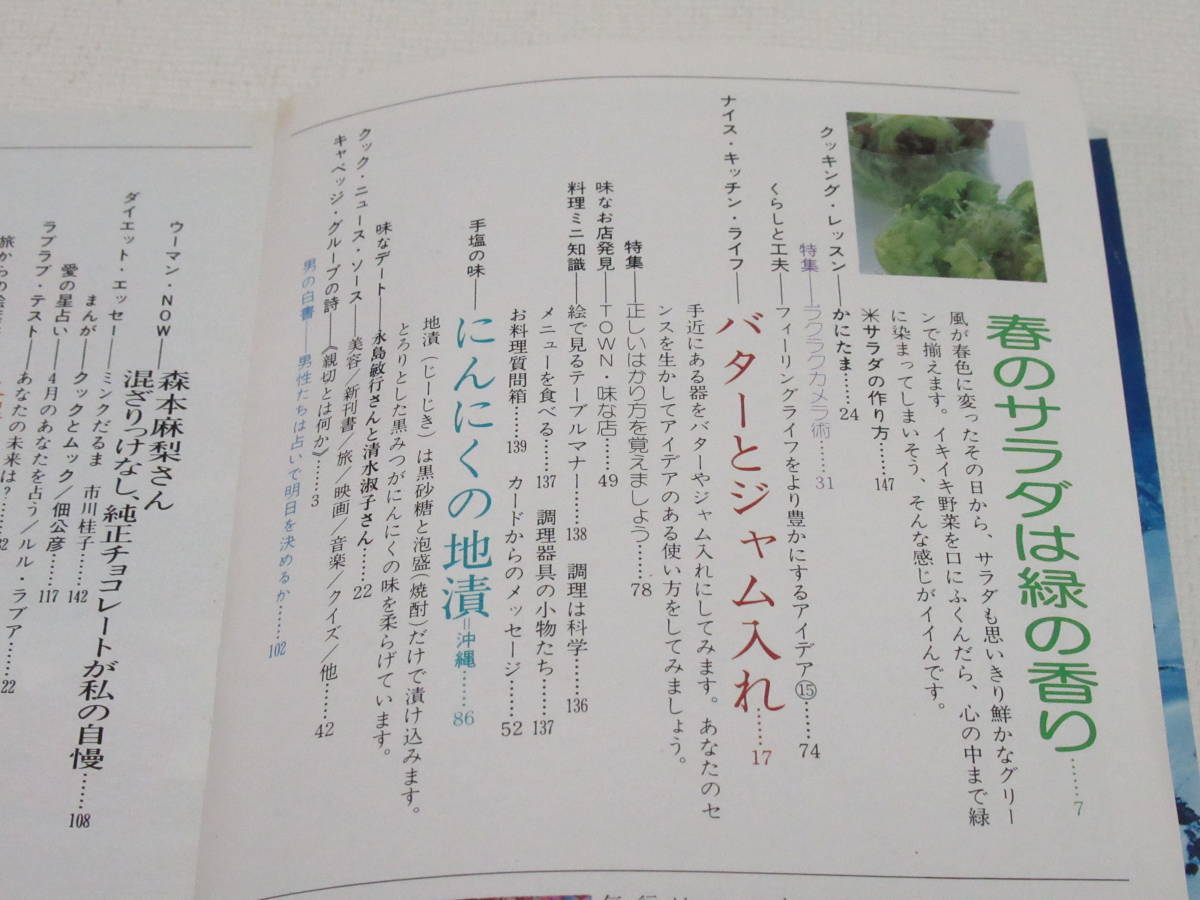 春のサラダは緑の香り……7
風が春色に変ったその日から、サラダも思いきり鮮かなグリー
ンで揃えます。イキイキ野菜を口にふくんだら、心の中まで緑
に染まってしまいそう、そんな感じがイイんです。
※サラダの作り方……147
クッキング・レッスン――かにたま……24
特集――ラクラクカメラ術……31
くらしと工夫――フィーリングライフをより豊かにするアイデア⑮……74
ナイス・キッチン・ライフ――バターとジャム入れ……17
手近にある器をバターやジャム入れにしてみます。あなたのセ
ンスを生かしてアイデアのある使い方をしてみましょう。
特集――正しいはかり方を覚えましょう……78
味なお店発見――TOWN・味な店……49
料理ミニ知識――絵で見るテーブルマナー……138 調理は科学……136
メニューを食べる……137 調理器具の小物たち……137
お料理質問箱……139 カードからのメッセージ……52
手塩の味――にんにくの地漬=沖縄……86
地漬(じーじき)は黒砂糖と泡盛(焼酎)だけで漬け込みます。
とろりとした黒みつがにんにくの味を柔らげています。
味なデート――永島敏行さんと清水淑子さん……22
クック・ニュース・ソース――美容/新刊書/旅/映画/音楽/クイズ/他……42
キャベッジ・グループの詩――《親切とは何か》……3
男の白書――男性たちは占いで明日を決めるか……102
ウーマン・NOW――森本麻梨さん
混ざりつけなし、純正チョコレートが私の自慢……108
ダイエット・エッセー――ミンクだるま 市川桂子……142
まんが――クックとムック/佃公彦……117
愛の星占い――4月のあなたを占う/ルル・ラブア……22
ラブラブ・テスト――あなたの未来は?……